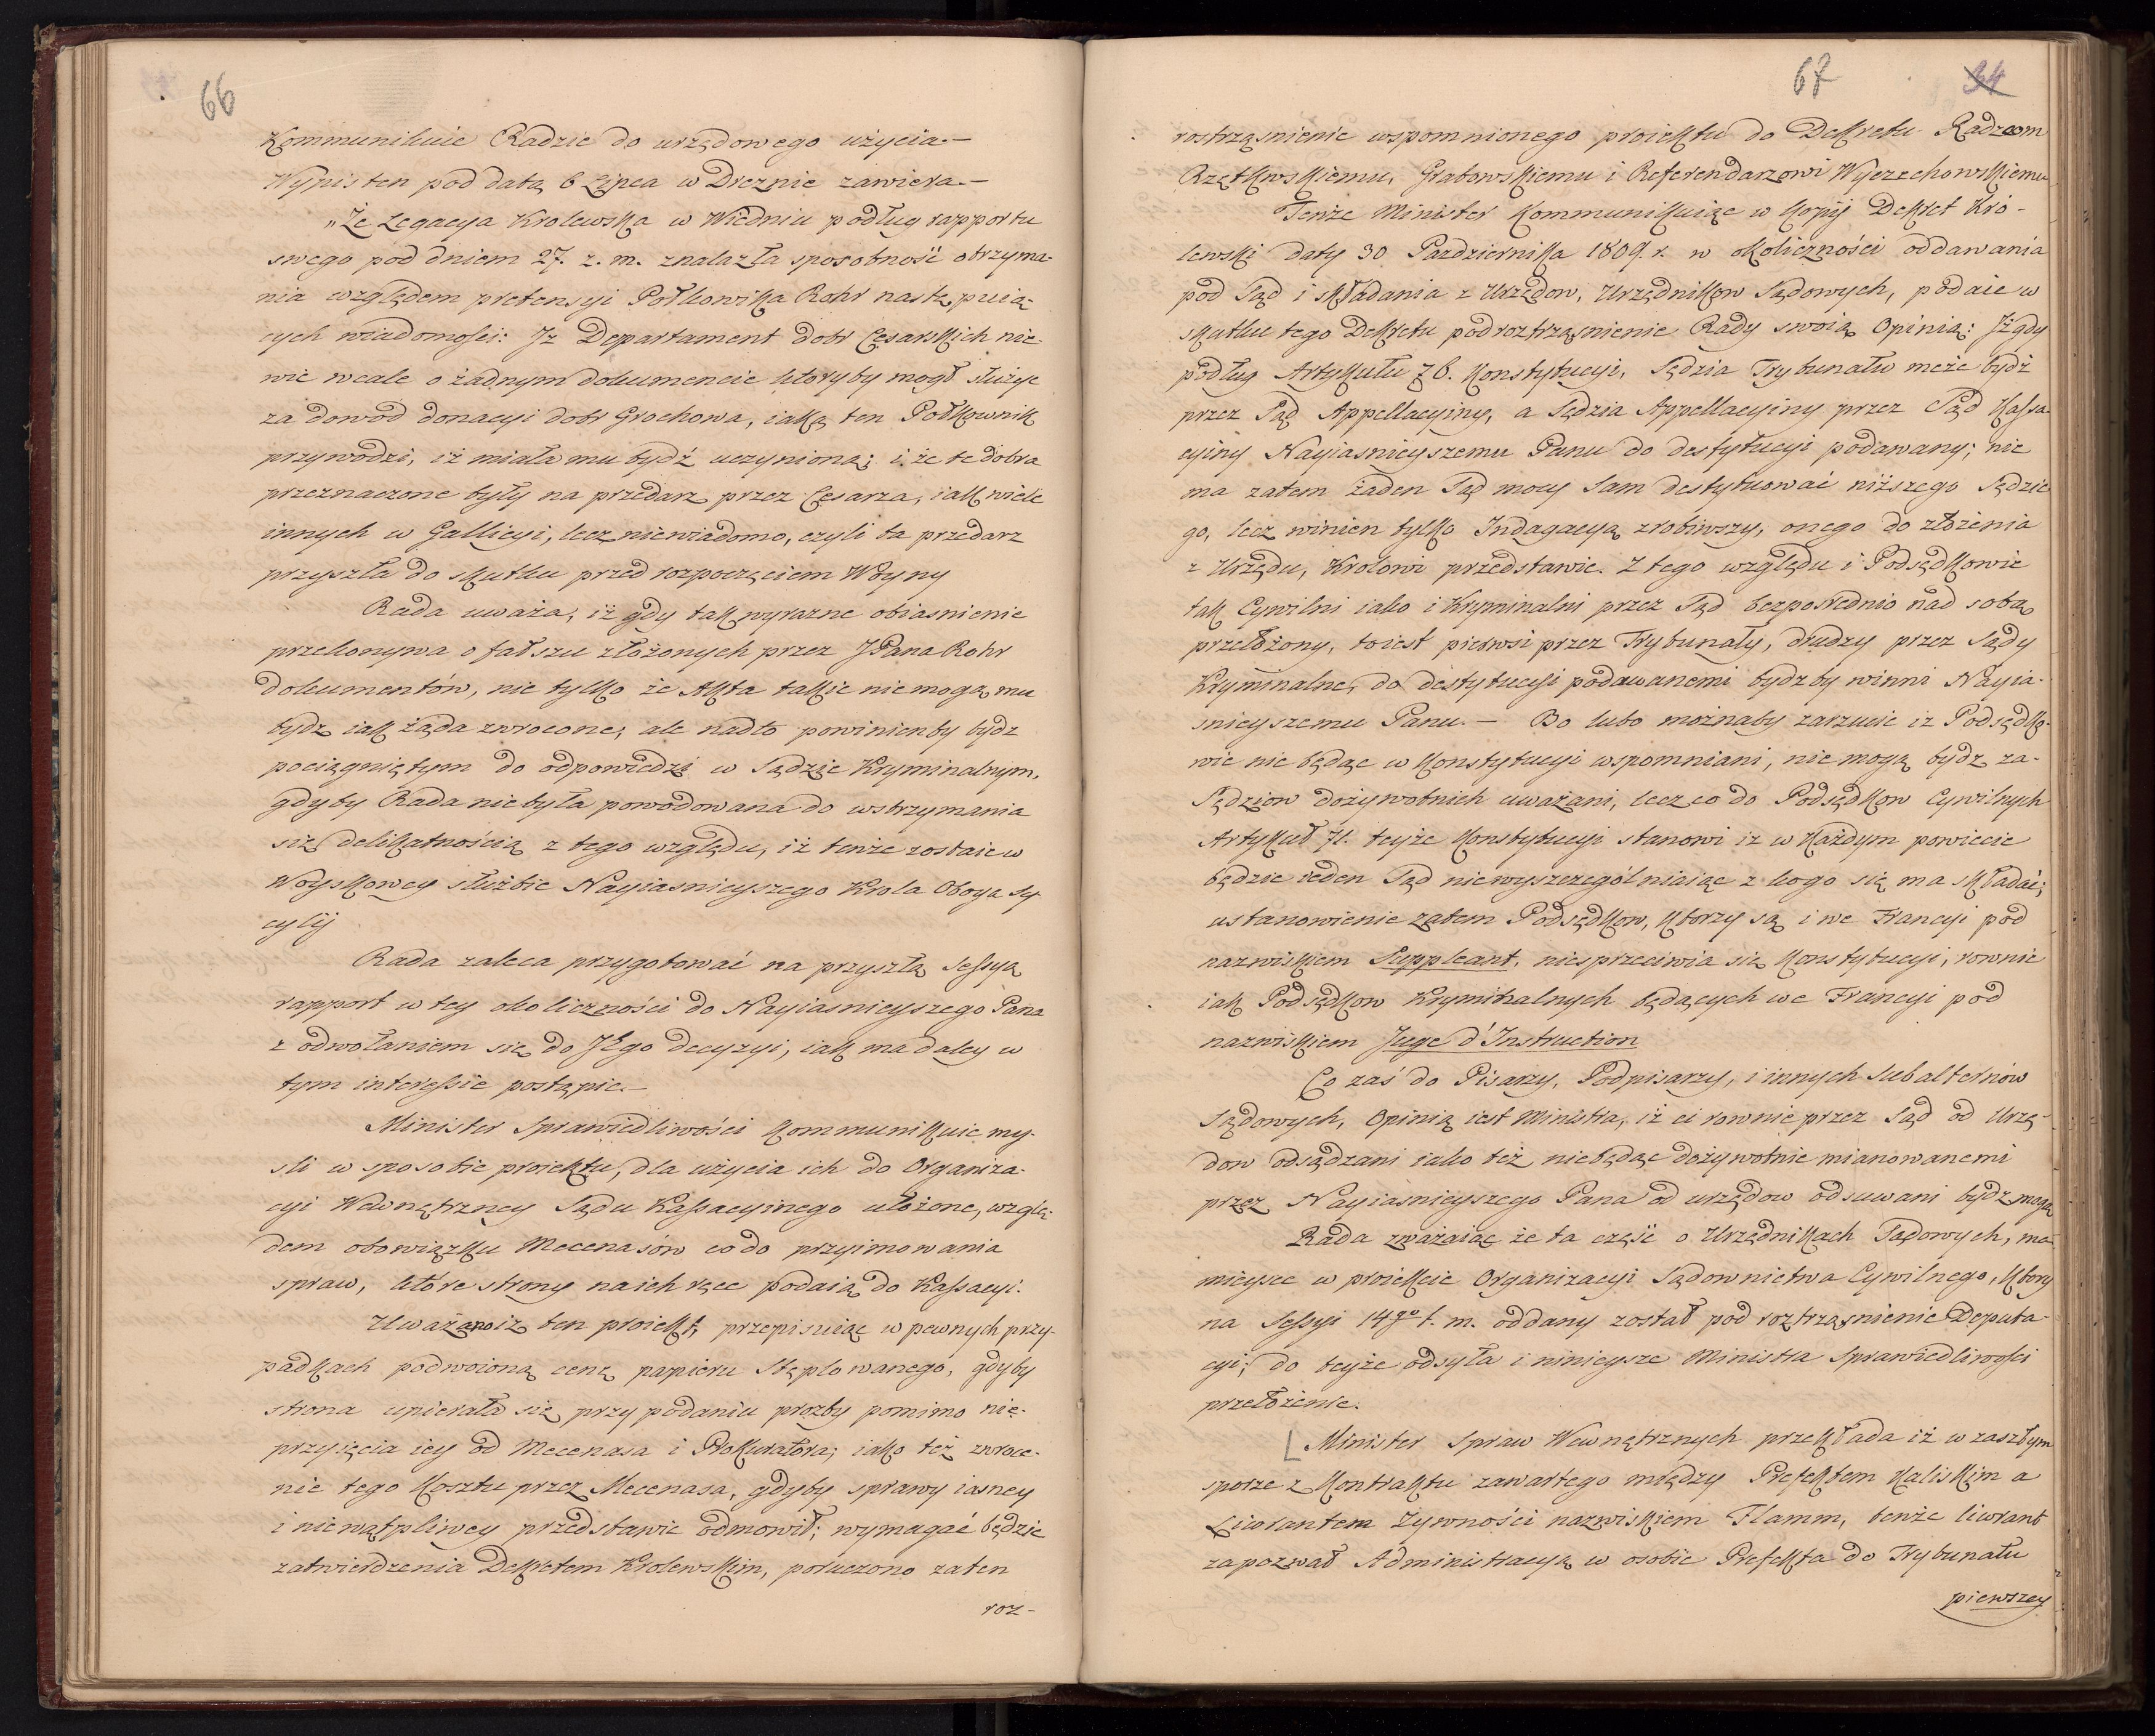 66
Kommunikuie Radzie do urzędowego użycia.–
Wypis ten pod datą 6 Lipca w Dreznie zawiera.–
„Że Legacya Krolewska w Wiedniu podług rapportu
swego pod dniem 27. z. m. znalazła sposobność otrzyma-
nia względem pretensyi Połkownika Rohr następuią-
cych wiadomości: Iż Departament dobr Cesarskich nie-
wie wcale o żadnym dokumencie któryby mogł służyc
za dowód donacyi dobr Grochowa, iaką ten Połkownik
przywodzi, iż miała mu bydź uczyniona; i że te dobra
przeznaczone były na przedarz przez Cesarza, iak wiele
innych w Gallicyi, lecz niewiadomo, czyli ta przedarz
przyszła do skutku przed rozpoczęciem Woyny
Rada uważa, iż gdy tak wyrazne obiasnienie
przekonywa o fałszu złożonych przez JPana Rohr
dokumentów, nie tylko że Akta takie niemogą mu
bydz iak żąda zwrocone; ale nadto powinienby bydz
pociągniętym do odpowiedzi w Sądzie Kryminalnym,
gdyby Rada niebyła powodowana do wstrzymania
się delikatnością z tego względu, iż tenże zostaie w
Woyskowey służbie Nayiasnieyszego Krola Oboyga Sy
cylij
Rada zaleca przygotować na przyszłą Sessyą
rapport w tey okoliczności do Nayiasnieyszego Pana
z odwołaniem się do JEgo decyzyi, iak ma daley w
tym interessie postąpic.–
Minister Sprawiedliwości kommunikuie my-
sli w sposobie proiektu, dla użycia ich do Organiza-
cyi Wewnętrzney Sądu Kassacyinego ułożone, wzglę-
dem obowiązku Mecenasów co do przyimowania
spraw, które strony na ich ręce podaią do Kassacyi.
Uważano iż ten proiekt, przepisuiąc w pewnych przy-
padkach podwoioną cenę papieru Stęplowanego, gdyby
strona upierała się przy podaniu prozby pomimo nie-
przyięcia iey od Mecenasa i Prokuratora; iako też zwroce-
nie tego kosztu przez Mecenasa, gdyby sprawy iasney
i niewątpliwey przedstawic odmowił; wymagać będzie
zatwierdzenia Dekretem Krolewskim, poruczono zatem
roz-
67
34
rostrząsnienie wspomnionego proiektu do Dekretu Radzcom
Rzętkwskiemu, Grabowskiemu i Referendarzowi Wyczechowskiemu
Tenże Minister kommunikuiąc w kopij Dekret Kró-
lewski daty 30 Pazdziernika 1809. r. w okoliczności oddawania
pod Sąd i składania z Urzędow, Urzędnikow Sądowych, podaie w
skutku tego Dekretu pod roztrząsnienie Rady swoią Opinią: Iż gdy
podług Artykułu 76. Konstytucyi, Sędzia Trybunału może bydź
przez Sąd Appellacyiny, a Sędzia Appellacyiny przez Sąd Kassa-
cyiny Nayiasnieyszemu Panu do destytucyi podawany; nie
ma zatem żaden Sąd mocy Sam destytuować niższego Sędzie
go, lecz winien tylko Indagacyą zrobiwszy, onego do złożenia
z Urzędu, Krolowi przedstawic. Z tego względu i Podsędkowie
tak Cywilni iako i Kryminalni przez Sąd bezposrednio nad sobą
przełożony, toiest pierwsi przez Trybunały, drudzy przez Sądy
Kryminalne, do destytucyi podawanemi bydzby winni Nayia-
snieyszemu Panu.– Bo lubo możnaby zarzucic iż Podsędko-
wie nie będąc w Konstytucyi wspomniani, nie mogą bydz za-
Sędziow dożywotnich uważani, lecz co do Podsędkow Cywilnych
Artykuł 71. teyże Konstytucyi stanowi iż w każdym powiecie
będzie ieden Sąd niewyszczególniaiąc z kogo się ma składać;
ustanowienie zatem Podsędkow, którzy są i we Francyi pod
nazwiskiem Suppleant, niesprzeciwia się Konstytucyi, rownie
iak Podsędkow Kryminalnych będących we Francyi pod
nazwiskiem Juge d'Instruction
Co zaś do Pisarzy, Podpisarzy, i innych Subalternów
Sądowych, Opinią iest Ministra, iż ci rownie przez Sąd od Urzę-
dow odsądzani iako też niebędąc dożywotnie mianowanemi
przez Nayiasnieyszego Pana od urzędow odsuwani bydz mogą
Rada zważaiąc że ta część o Urzędnikach Sądowych, ma
mieysce w proiekcie Organizacyi Sądownictwa Cywilnego, ktory
na Sessyi 14go t. m. oddany został pod roztrząsnienie Deputa-
cyi; do teyże odsyła i ninieysze Ministra Sprawiedliwości
przełożenie.
Minister Spraw Wewnętrznych przekłada iż w zaszłym
sporze z Kontraktu zawartego między Prefektem Kaliskim a
Liwerantem Żywności nazwiskiem Flamm, tenże liwerant
zapozwał Administracyą w osobie Prefekta do Trybunału
pierwszey